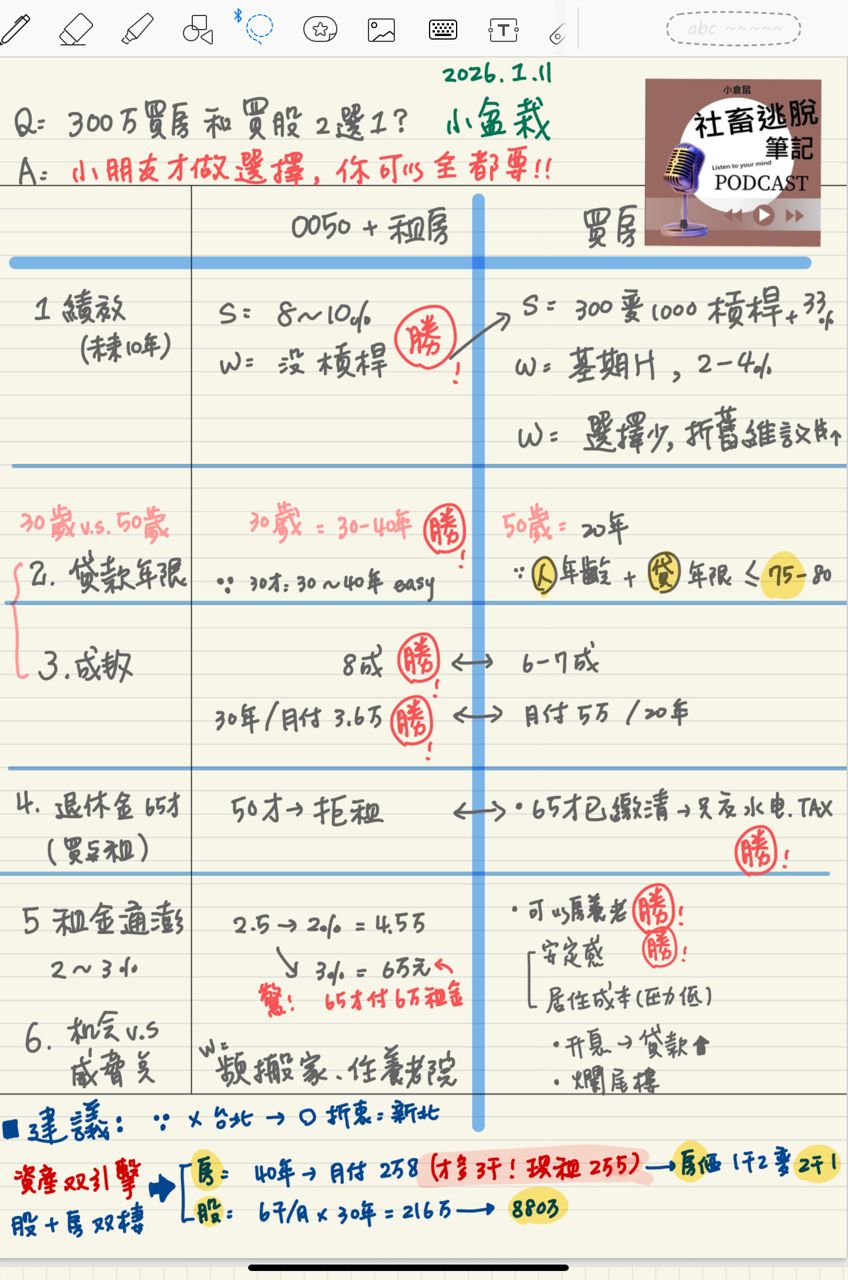 abc ~~~~~
2026.1.11
Q: 300万買房和買股2選1? 小盆栽
A: 小朋友才做選擇, 你可以全都要!!
小倉鼠
社畜逃脫
筆記
Listen to your mind
PODCAST
0050 + 租房 買房
1 績效 S= 8~10% 勝! S= 300變1000 槓桿+33%
(未來10年) W= 沒槓桿 W= 基期H, 2-4%
W= 選擇少, 折舊維設 ↑
30歲v.s.50歲 30歲 = 30-40年 勝! 50歲= 20年
2. 貸款年限 ∵ 30才: 30~40年 easy ∵ 人年齡 + 貸年限 ≤ 75-80
3. 成数 8成 勝! ↔ 6-7成
30年/月付3.6万 勝! ↔ 月付5万/20年
4. 退休金65才 50才→拒租 ↔ • 65才已繳清→只交水电.TAX
(買與租) 勝!
5 租金通澎 2.5→2% = 4.5万 • 可以房養老 勝!
2~3% ↘ 3% = 6万元 安定感 勝!
驚! 65才付6万租金 居住成本(压力低)
6. 机会v.s W= • 升息→貸款↑
威脅 頻搬家、住養老院 • 爛尾樓
建議: ∵ × 台北 → ○ 折衷=新北
資產双引擎 房: 40年→月付258 (才多3千! 現租255) → 房価1千2變2千1
股+房双棲 股: 6千/月×30年=216万 → 880万